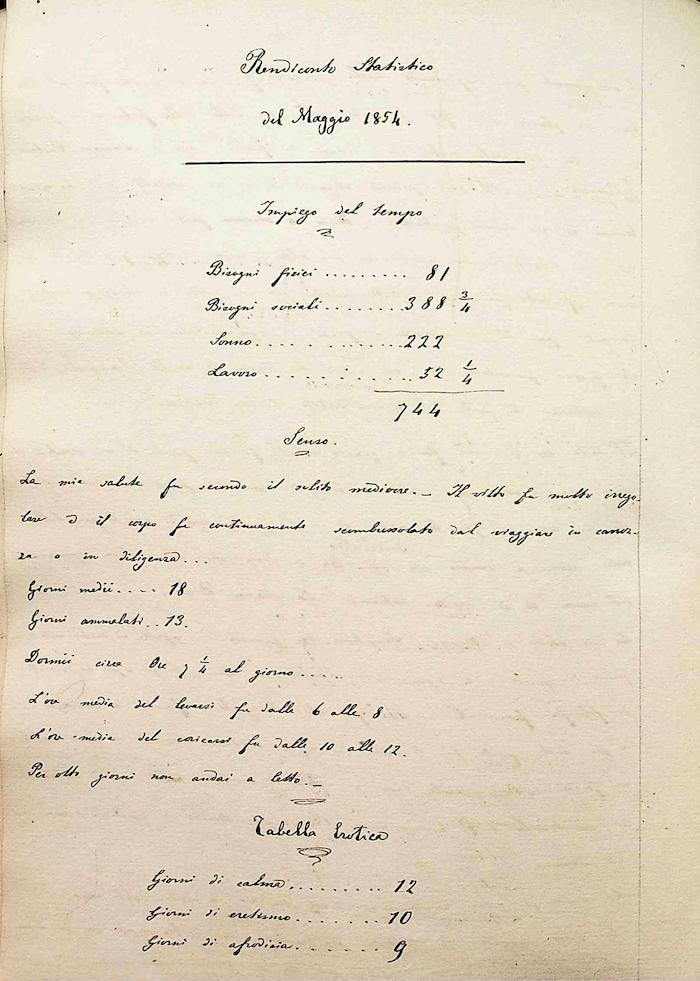 Rendiconto Statistico
del Maggio 1854.
Impiego del tempo
Bisogni fisici ......... 81
Bisogni sociali ........ 388 3/4
Sonno .............. 222
Lavoro ............. 52 1/4
744
Senso.
La mia salute fu secondo il solito mediocre. _ Il vitto fu molto irrego-
lare e il corpo fu continuamente scombussolato dal viaggiare in carroz-
za o in diligenza...
Giorni medii .... 18
Giorni ammalati .. 13.
Dormii circa Ore 7 1/4 al giorno.....
L'ora media del levarsi fu dalle 6 alle 8
L'ora media del coricarsi fu dalle 10 alle 12.
Per otto giorni non andai a letto._
Tabella Erotica
Giorni di calma ......... 12
Giorni di eretismo ........ 10
Giorni di afrodisia ....... 9